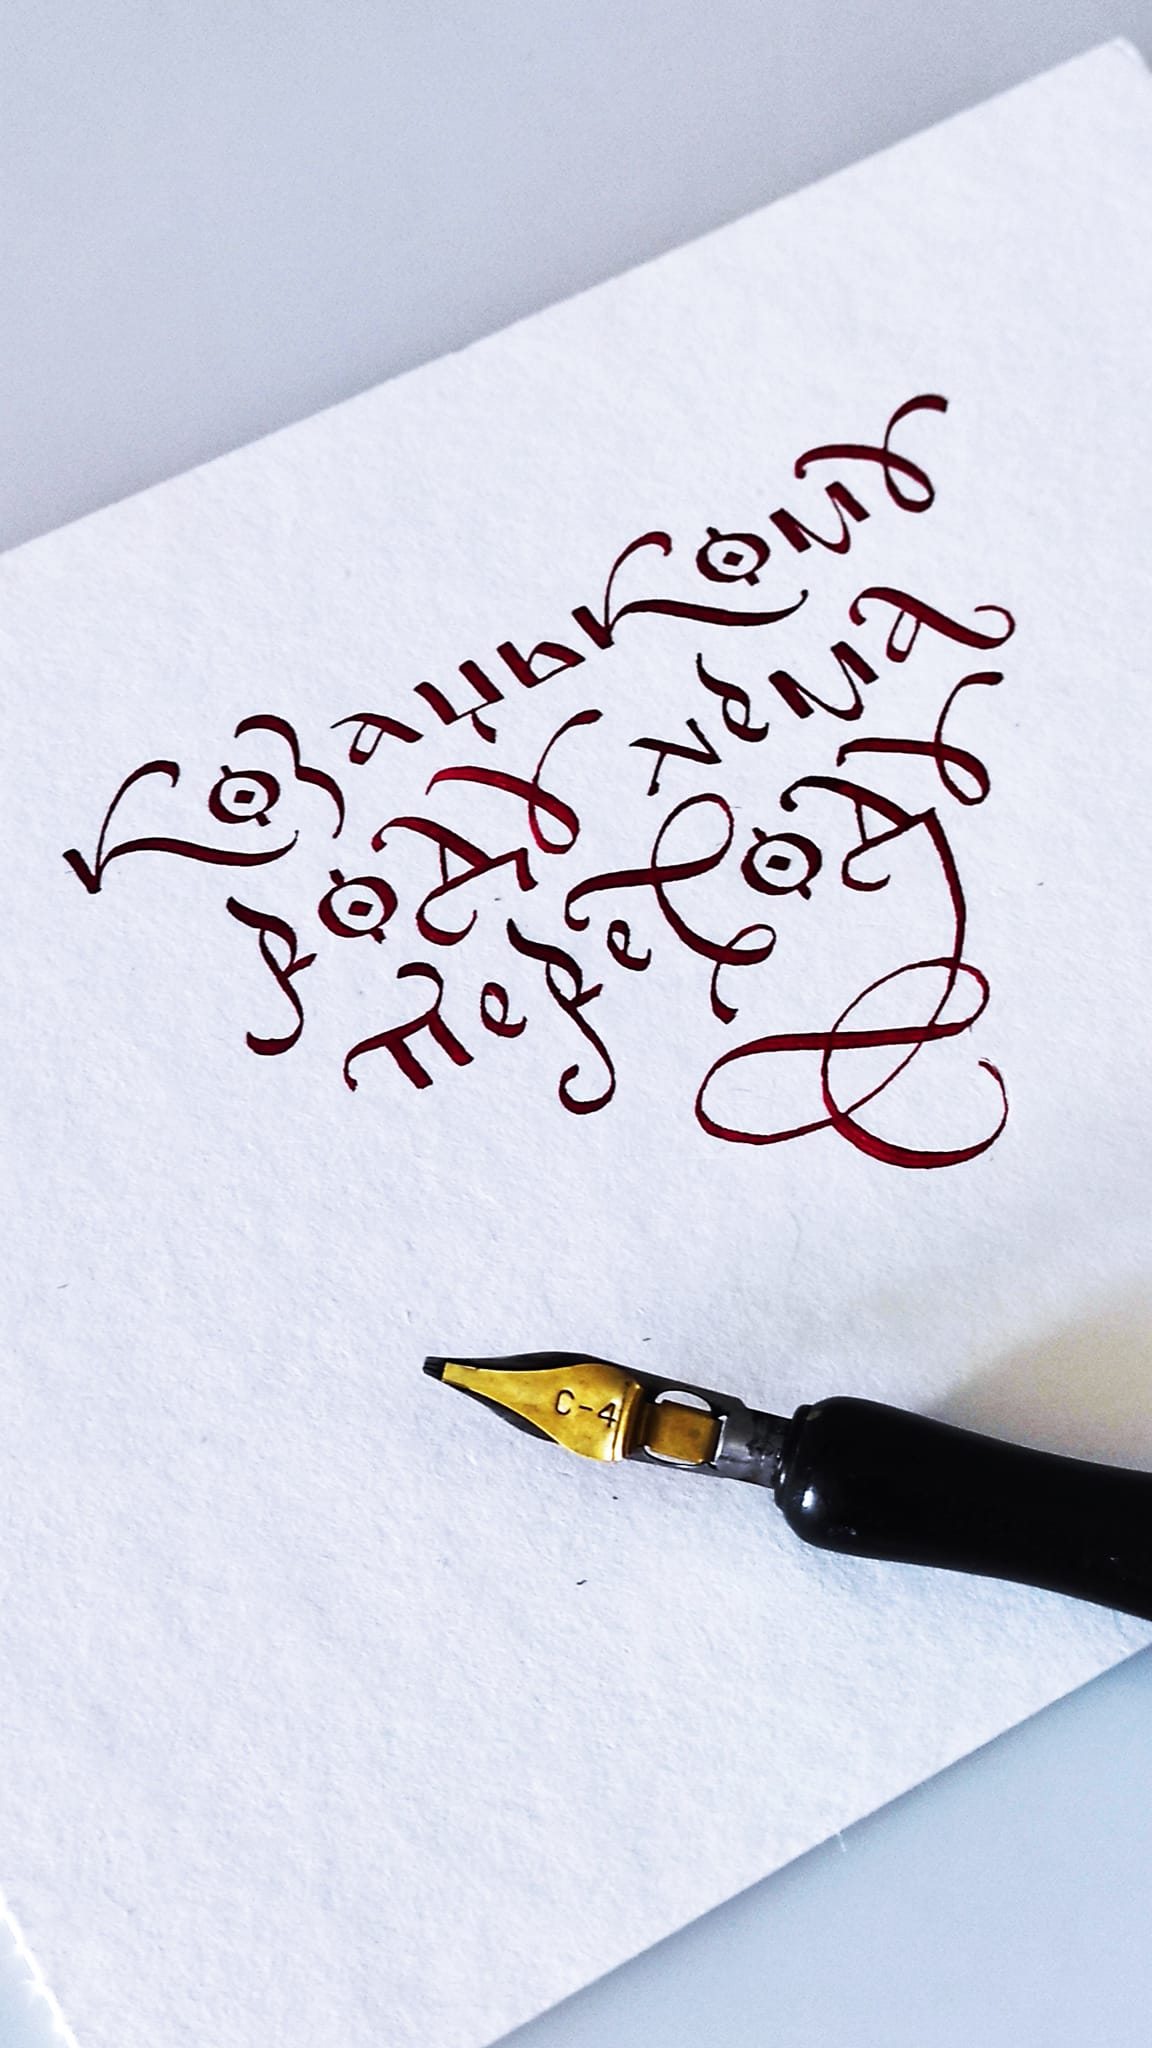 Козацькому
роду нема
переводу
C-4